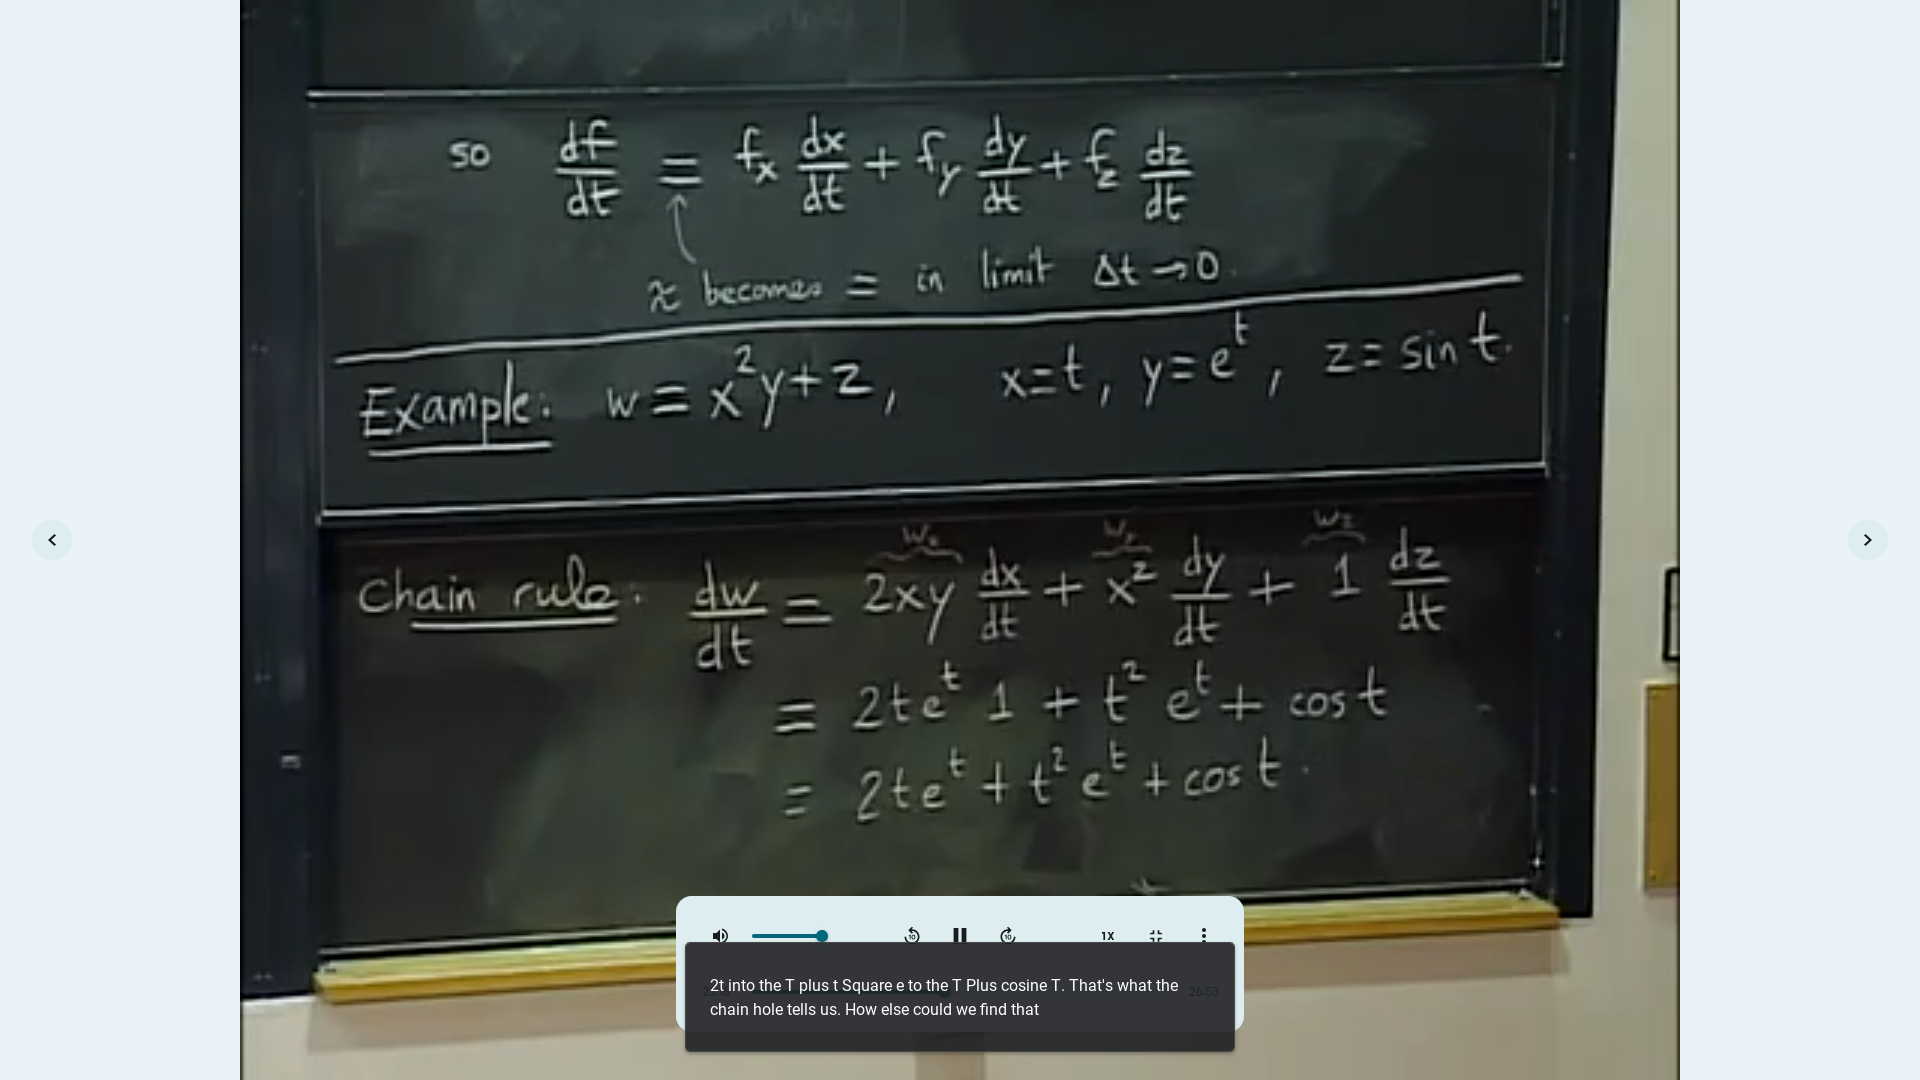 so df/dt = f_x dx/dt + f_y dy/dt + f_z dz/dt
≈ becomes = in limit Δt → 0.
Example: w = x²y + z, x = t, y = e^t, z = sin t.
w_x w_y w_z
Chain rule: dw/dt = 2xy dx/dt + x² dy/dt + 1 dz/dt
= 2te^t 1 + t² e^t + cos t
= 2te^t + t² e^t + cos t.
1X
26:53
2t into the T plus t Square e to the T Plus cosine T. That's what the
chain hole tells us. How else could we find that